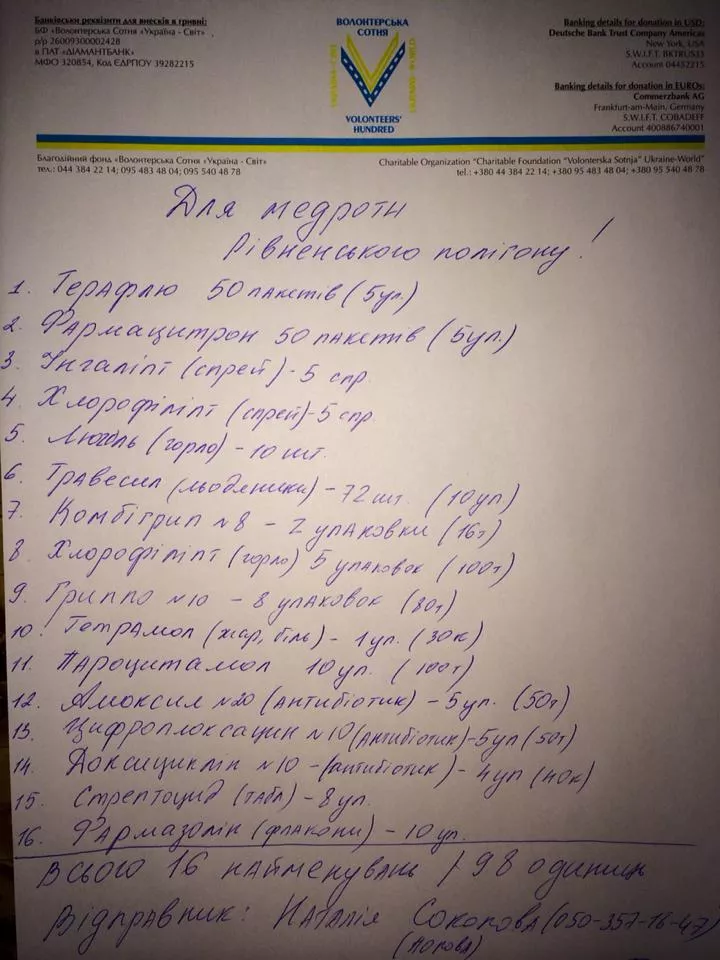 Банківськи реквізити для внесків в гривні:
БФ «Волонтерська Сотня «Україна - Світ»
р/р 26009300002428
в ПАТ «ДІАМАНТБАНК»
МФО 320854, Код ЄДРПОУ 39282215
ВОЛОНТЕРСЬКА
СОТНЯ
УКРАЇНА-СВІТ
UKRAINE-WORLD
VOLONTEERS'
HUNDRED
Banking details for donation in USD:
Deutsche Bank Trust Company Americas
New York, USA
S.W.I.F.T. BKTRUS33
Account 04452215
Banking details for donation in EUROs:
Commerzbank AG
Frankfurt-am-Main, Germany
S.W.I.F.T. COBADEFF
Account 400886740001
Благодійний фонд «Волонтерська Сотня «Україна - Світ»
тел.: 044 384 22 14; 095 483 48 04; 095 540 48 78
Charitable Organization "Charitable Foundation "Volonterska Sotnja" Ukraine-World"
tel.: +380 44 384 22 14; +380 95 483 48 04; +380 95 540 48 78
Для медроти
Рівненського полігону!
1. Терафлю 50 пакетів (5уп.)
2. Фармацитрон 50 пакетів (5уп.)
3. Інгаліпт (спрей) - 5 спр.
4. Хлорофіліпт (спрей) - 5 спр.
5. (горло) - 10 шт.
6. Травесил (льодяники) - 72 шт. (10уп)
7. Комбігрип №8 - 2 упаковки (16т)
8. Хлорофіліпт (горло) 5 упаковок (100т)
9. Гриппо №10 - 8 упаковок (80т)
10. Тетрамол (жар, біль) - 1 уп. (30к)
11. Пароцитамол 10 уп. (100т)
12. Амоксил №20 (антибіотик) - 5 уп. (50т)
13. Цифроплоксацин №10 (антибіотик) - 5уп (50т)
14. Доксициклін №10 - (антибіотик) - 4 уп (40к)
15. Стрептоцид (табл) - 8 уп.
16. Фармазолін (флакони) - 10 уп.
Всього 16 найменувань / 98 одиниц
Відправник: Наталія (050-357-16-47)